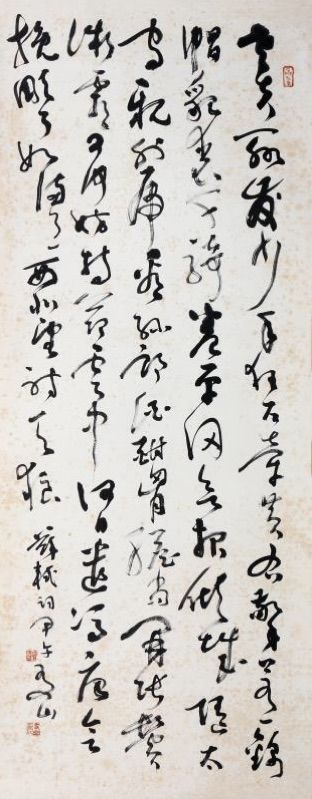 老夫聊發少年狂左牽黃右擎蒼錦
帽貂裘千騎卷平岡為報傾城隨太
守親射虎看孫郎酒酣胸膽尚開張鬢
微霜又何妨持節雲中何日遣馮唐會
挽雕弓如滿月西北望射天狼 蘇軾詞甲午